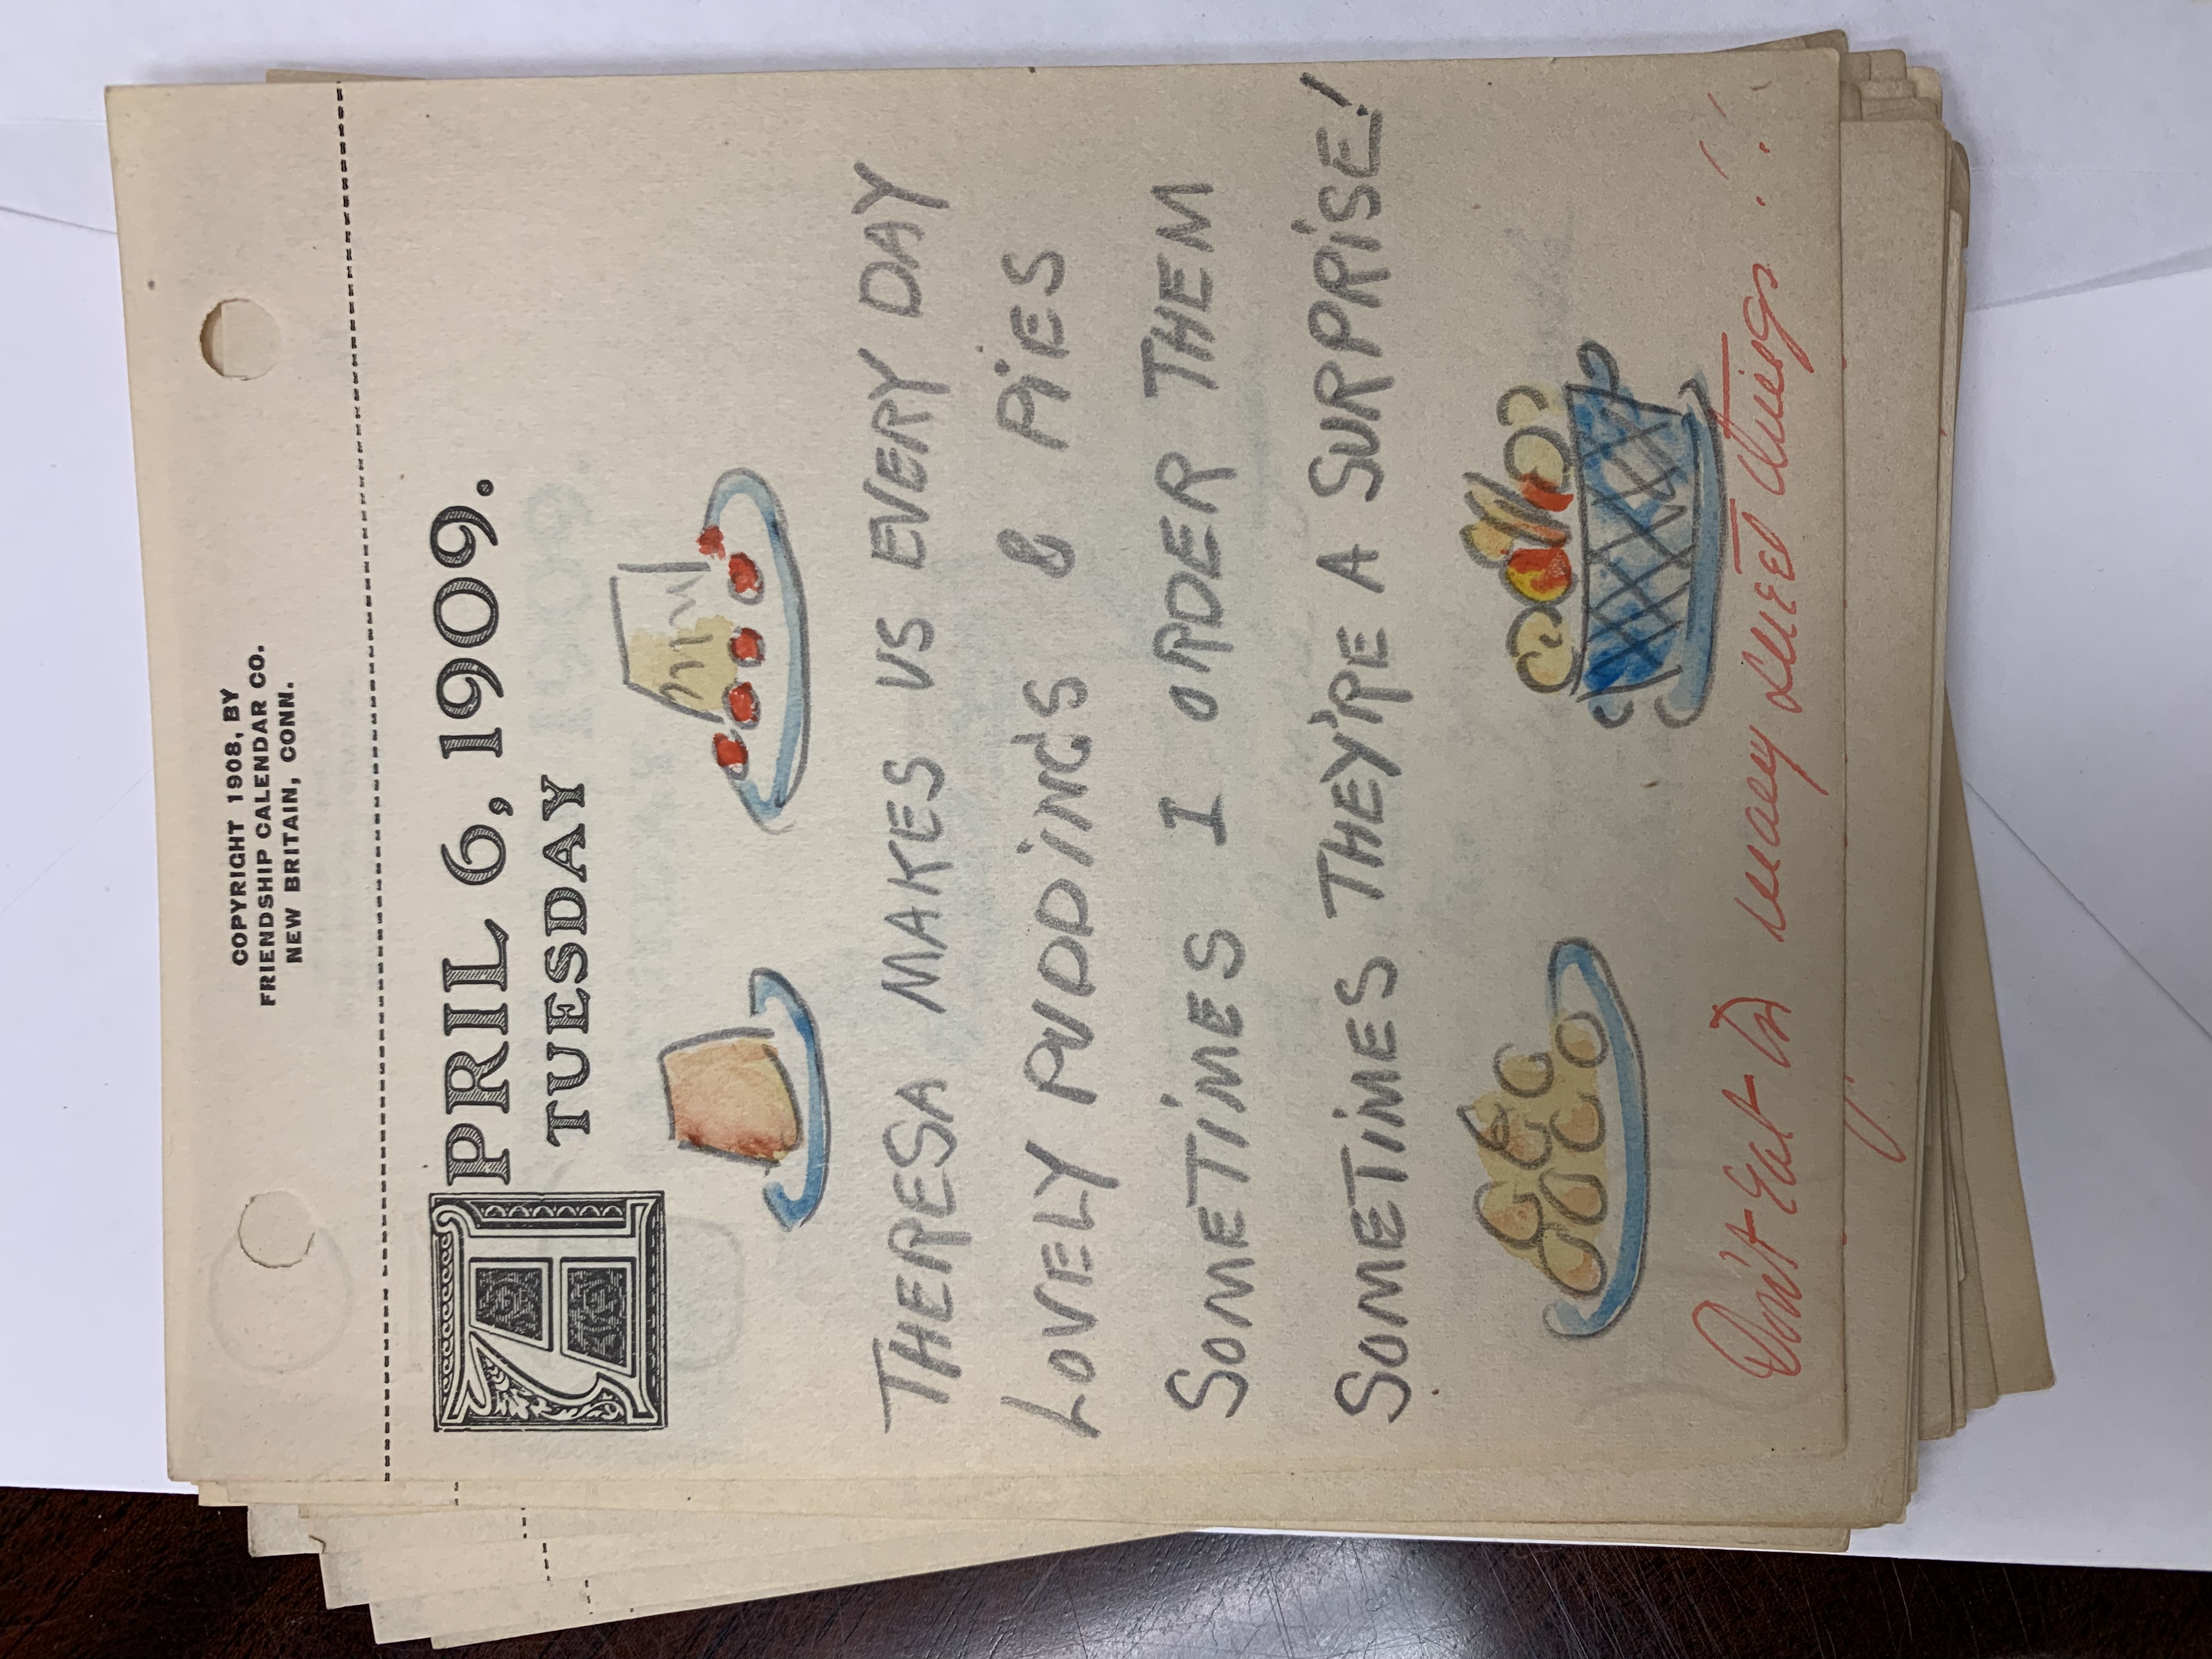 COPYRIGHT 1908, BY
FRIENDSHIP CALENDAR CO.
NEW BRITAIN, CONN.
APRIL 6, 1909.
TUESDAY
THERESA MAKES US EVERY DAY
LOVELY PUDDiNG'S & PiES
SOMETiMES I ORDER THEM
SOMETiMES THEY'RE A SURPRiSE!
Don't Eat too many sweet things !!